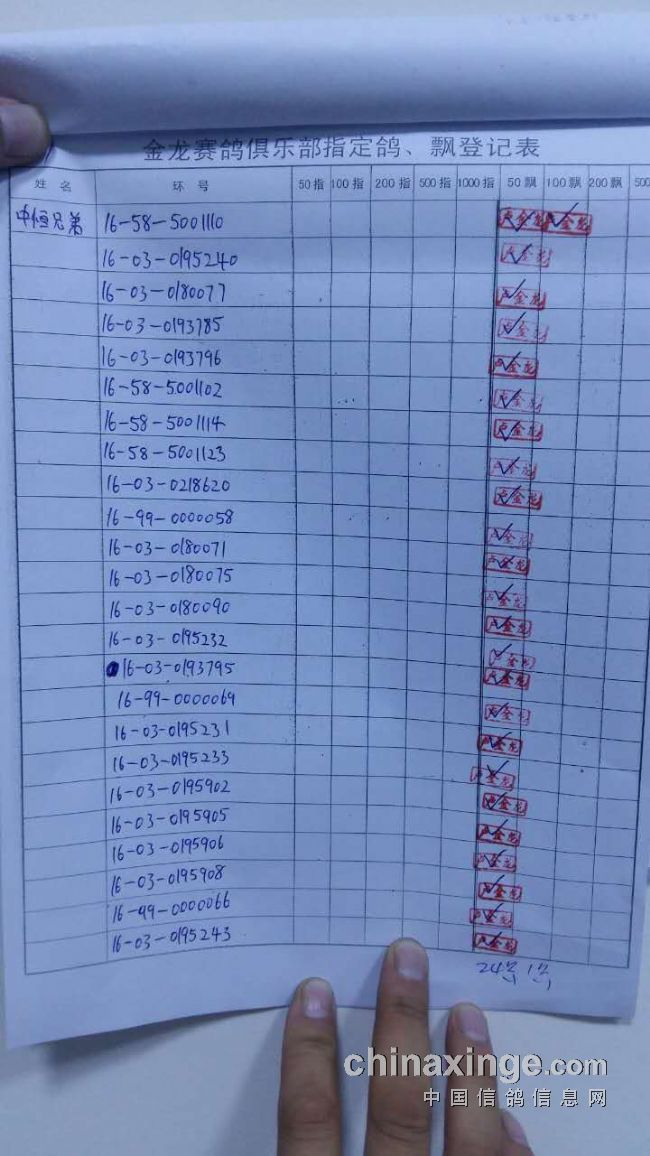 金龙赛鸽俱乐部指定鸽、飘登记表
姓 名 环 号 50指 100指 200指 500指 1000指 50飘 100飘 200飘 500
中恒兄弟 16-58-5001110 金龙 金龙
16-03-0195240 金龙
16-03-0180077 金龙
16-03-0193785 金龙
16-03-0193796 金龙
16-58-5001102 金龙
16-58-5001114 金龙
16-58-5001123 金龙
16-03-0218620 金龙
16-99-0000058 金龙
16-03-0180071 金龙
16-03-0180075 金龙
16-03-0180090 金龙
16-03-0195232 金龙
16-03-0193795 金龙
16-99-0000069 金龙
16-03-0195231 金龙
16-03-0195233 金龙
16-03-0195902 金龙
16-03-0195905 金龙
16-03-0195906 金龙
16-03-0195908 金龙
16-99-0000066 金龙
16-03-0195243 金龙
24 1
chinaxinge.com
中国信鸽信息网